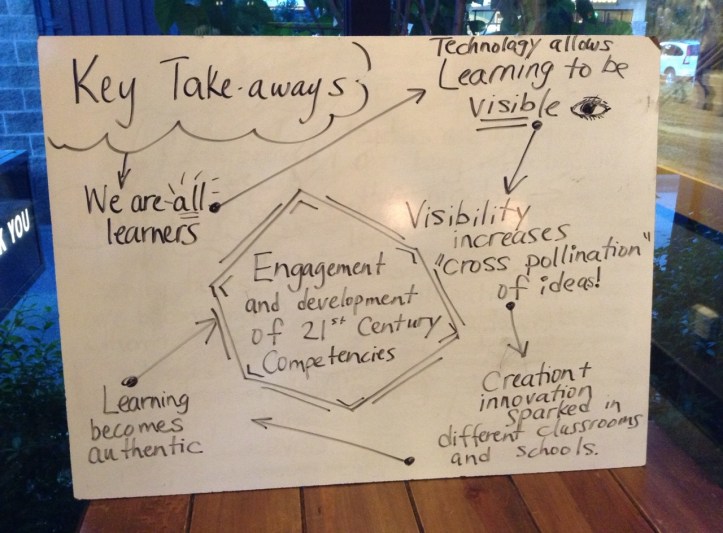 Key Take-aways
We are all
learners
Technology allows
Learning to be
visible
Visibility
increases
"cross pollination"
of ideas!
Creation +
innovation
sparked in
different classrooms
and schools.
Learning
becomes
authentic
Engagement
and development
of 21st Century
Competencies
YOU